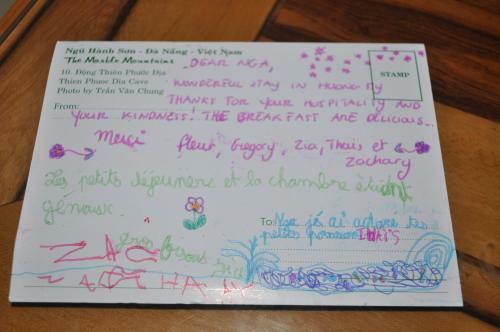 Ngũ Hành Sơn - Đà Nẵng - Việt Nam
The Marble Mountains
10. Động Thiên Phước Địa
Thien Phuoc Dia Cave
Photo by Trần Văn Chung
STAMP
From:
DEAR NGA,
WONDERFUL STAY IN HUONG MY
THANKS FOR YOUR HOSPITALITY AND
YOUR KINDNESS! THE BREAKFAST ARE DELICIOUS...
Merci Fleur, Gregory, Zia, Thaïs et
Zachary
Les petits déjeuners et la chambre étaient
géniaux.
To:
j'ai adoré tes
petits poissons
gros bisous Zia
ZAC
ZACHARY